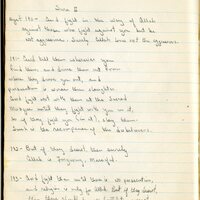 Sura II
Ayat 190 - And fight in the way of Allah
against those who fight against you but be
not aggressive. Surely Allah loves not the aggressors.
191- And kill them wherever you
find them, and drive them out from
where they drove you out, and
persecution is worse than slaughter.
And fight not with them at the Sacred
Mosque until they fight with you in it,
So if they fight you (in it) slay them
Such is the recompense of the disbelievers.
192- But if they desist, then surely
Allah is Forgiving, Merciful.
193- And fight them until there is no persecution,
and religion is only for Allah. But if they desist,